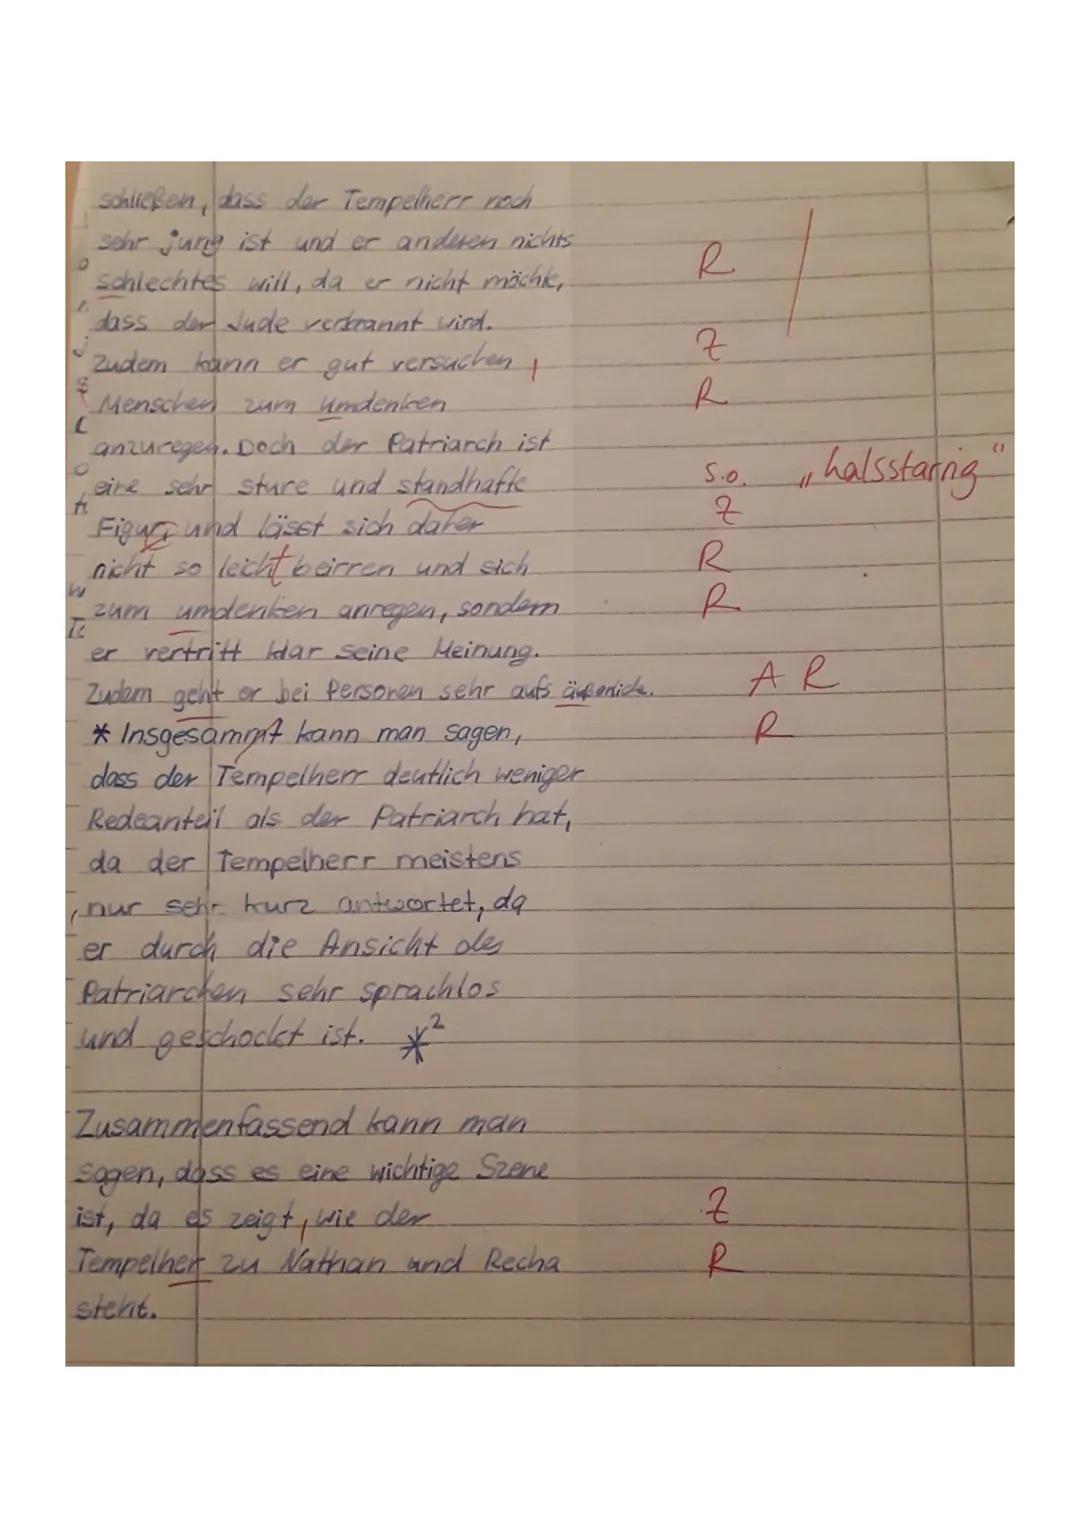 schließen, dass der Tempelherr noch
sehr jung ist und er anderen nichts
schlechtes will, da er nicht möchte, R
dass der Jude verbrannt wird.
Zudem kann er gut versuchen, Z
Menschen zum umdenken R
anzuregen. Doch der Patriarch ist
eine sehr sture und standhafte s.o. „halsstarrig"
Figur und lässt sich daher Z
nicht so leicht beirren und sich R
zum umdenken anregen, sondern R
er vertritt klar seine Meinung.
Zudem geht er bei Personen sehr aufs A R
* Insgesammt kann man sagen, R
dass der Tempelherr deutlich weniger
Redeanteil als der Patriarch hat,
da der Tempelherr meistens
nur sehr kurz antwortet, da
er durch die Ansicht des
Patriarchen sehr sprachlos
und geschockt ist. *²
Zusammenfassend kann man
sagen, dass es eine wichtige Szene
ist, da es zeigt, wie der Z
Tempelher zu Nathan und Recha R
steht.